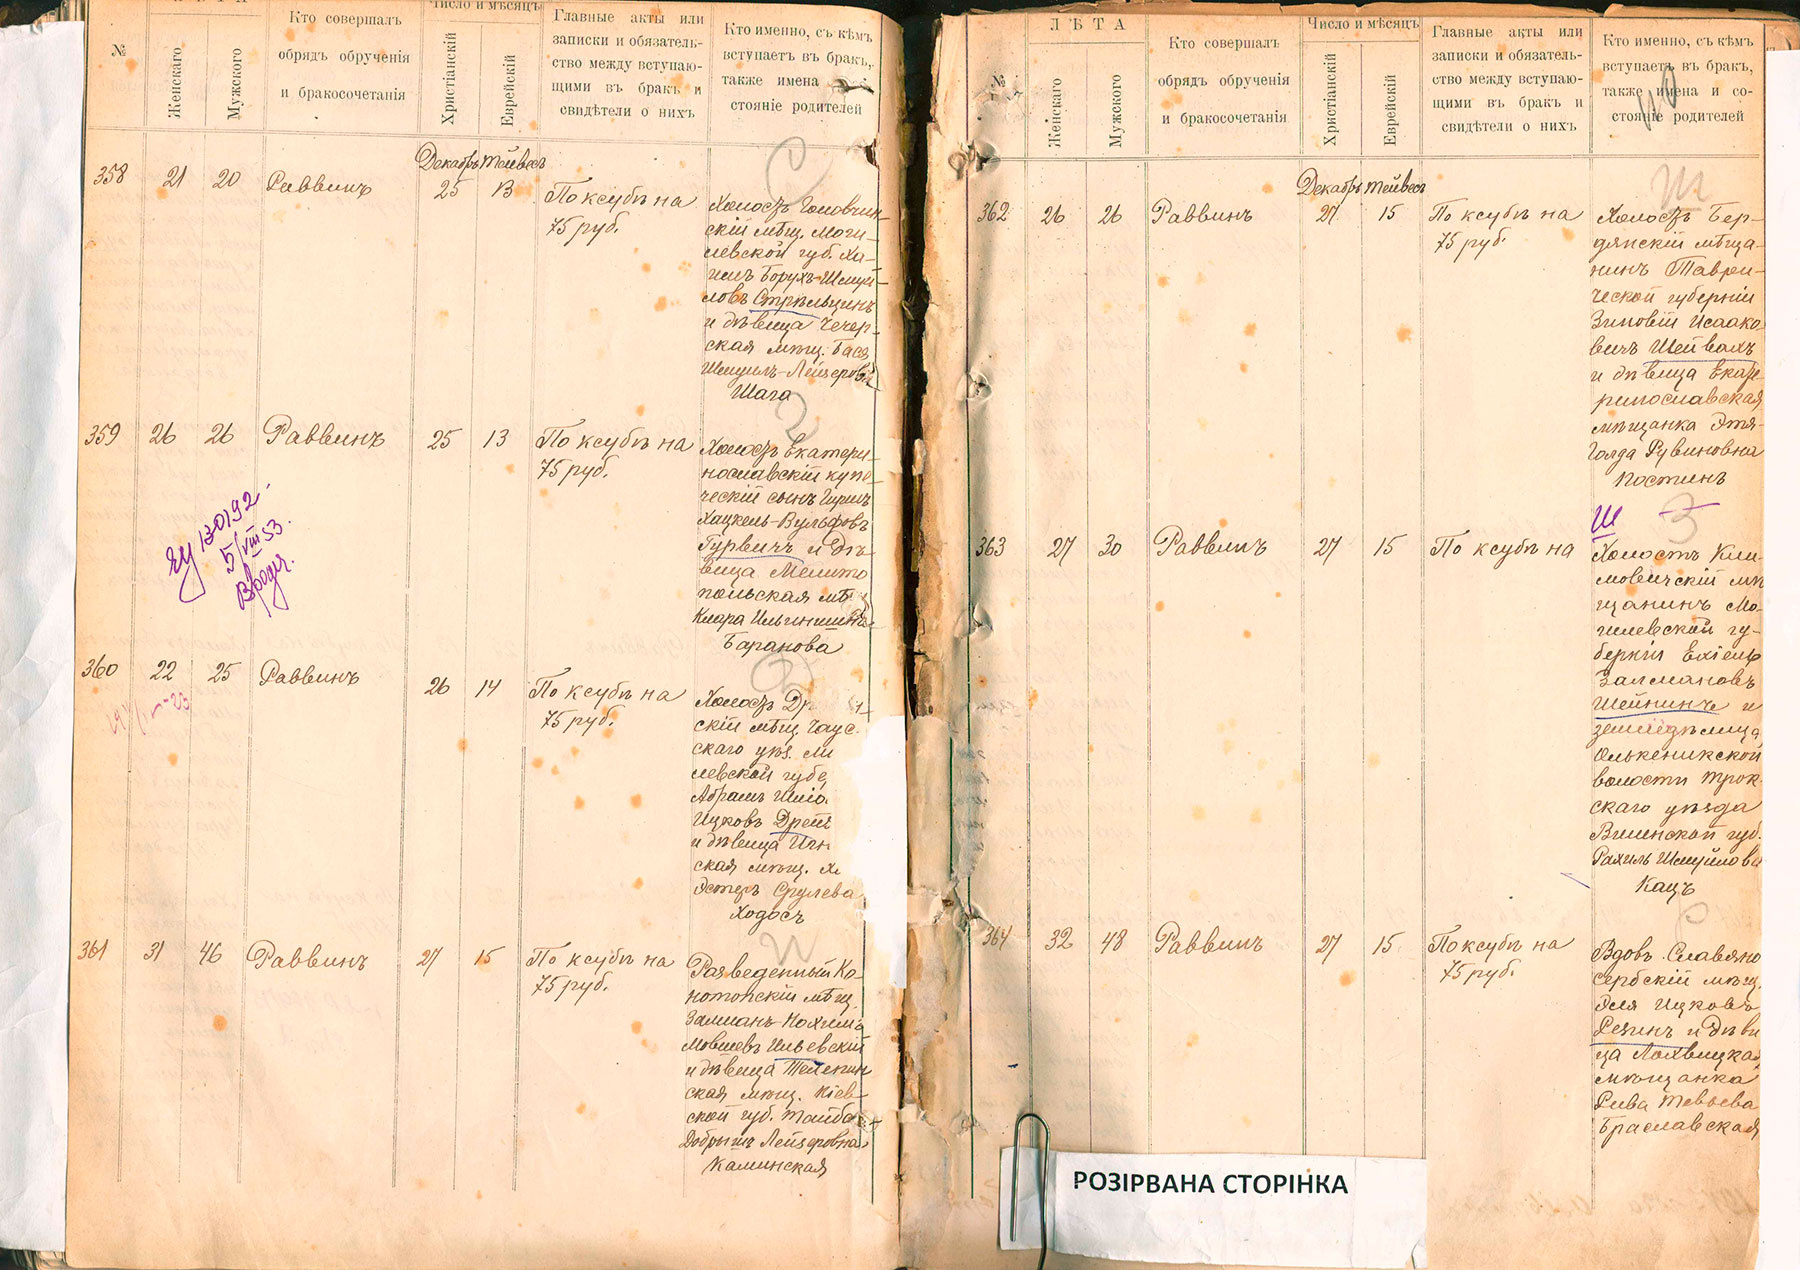 ЛѢТА
Число и мѣсяцъ
№
Женскаго
Мужского
Кто совершалъ
обрядъ обрученія
и бракосочетанія
Христіанскій
Еврейскій
Главные акты или
записки и обязатель-
ство между вступаю-
щими въ бракъ и
свидѣтели о нихъ
Кто именно, съ кѣмъ
вступаетъ въ бракъ,
также имена
стояніе родителей
Декабрь Тейвесъ
358 21 20 Раввинъ 25 13 По ксубѣ на
75 руб.
Холостъ Головчин-
скій мѣщ. Моги-
левской губ. Ха-
имъ Борухъ-Шмуй-
ловъ Стрѣльцинъ
и дѣвица Чечер-
ская мѣщ. Бася
Шмуилъ-Лейзерова
Шага
359 26 26 Раввинъ 25 13 По ксубѣ на
75 руб.
Холостъ Екатери-
нославскій купе-
ческій сынъ Гиршъ
Хацкель-Вульфовъ
Гурвичъ и дѣ-
вица Мелито
польская мѣ
Клара
Баранова
130192
5/VIII 53.
360 22 25 Раввинъ 26 14 По ксубѣ на
75 руб.
Холостъ Др
скій мѣщ. Чаус
скаго уѣз.
левской губе
Абрамъ Шлио
Ицковъ Дрей
и дѣвица Иг
ская мѣщ. Х
Эстеръ Срулева
Ходосъ
361 31 46 Раввинъ 27 15 По ксубѣ на
75 руб.
Разведенный Ко-
нотопскій мѣщ.
Залманъ-Нохимъ
Мовшевъ Ильевскій
и дѣвица
ская мѣщ. Кіев-
ской губ. Тайба
Добрышъ Лейзеровна
Каминская
ЛѢТА
Число и мѣсяцъ
№
Женскаго
Мужского
Кто совершалъ
обрядъ обрученія
и бракосочетанія
Христіанскій
Еврейскій
Главные акты или
записки и обязатель-
ство между вступаю-
щими въ бракъ и
свидѣтели о нихъ
Кто именно, съ кѣмъ
вступаетъ въ бракъ,
также имена и со-
стояніе родителей
Декабрь Тейвесъ
Ш
362 26 26 Раввинъ 27 15 По ксубѣ на
75 руб.
Холостъ Бер-
дянскій мѣща-
нинъ Таври-
ческой губерніи
Зиновій Исаако-
вичъ Шейвахъ
и дѣвица Екате-
ринославская
мѣщанка Этя-
Голда Рувиновна
Костинъ
Ш
З
363 27 30 Раввинъ 27 15 По ксубѣ на
Холостъ Кли-
мовичскій мѣ
щанинъ Мо-
гилевской гу-
берніи Ехіель
Залмановъ
Шейнинъ и
земледѣлица
Олькеникской
волости Трок-
скаго уѣзда
Виленской губ.
Рахиль Шмуйлова
Кацъ
364 32 48 Раввинъ 27 15 По ксубѣ на
75 руб.
Вдовъ Славяно
сербскій мѣщ.
Эля Ицковъ
Резинъ и дѣви
ца Лохвицкая
мѣщанка
Рива Тевьева
Браславская
РОЗІРВАНА СТОРІНКА